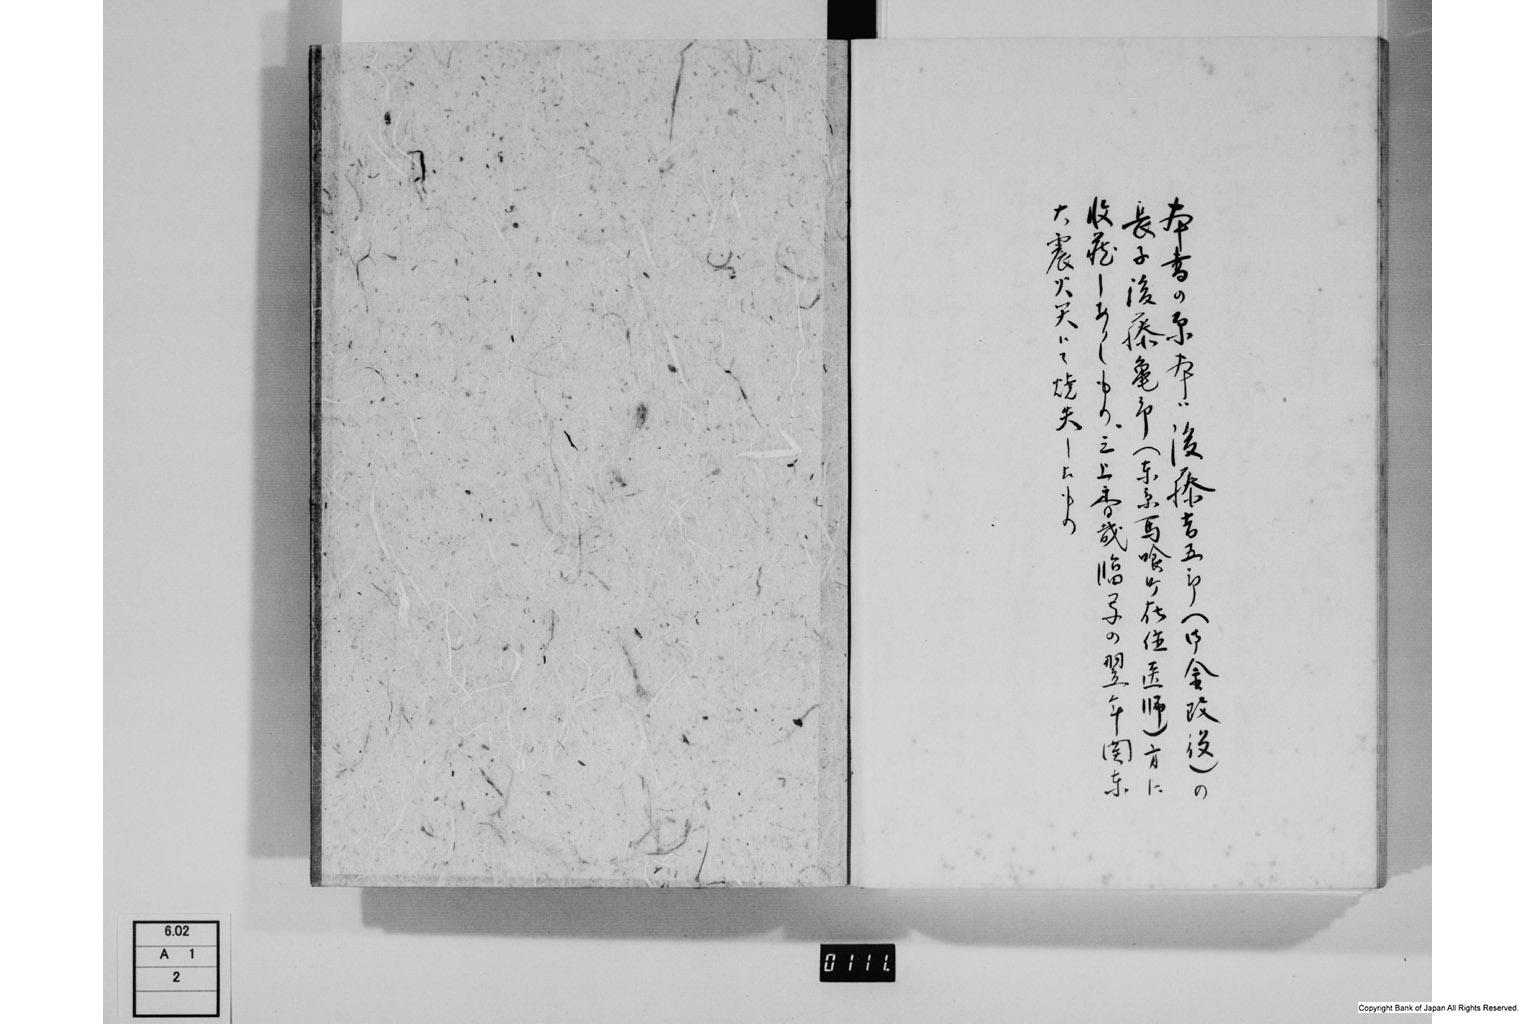 本書の原本は後藤吉五郎(御金改役)の
長子後藤亀郎(東京馬喰町在住医師)方に
収蔵しありしもの、三上香哉臨写の翌年関東
大震火災にて焼失したもの
6.02
A 1
2
0111.
Copyright Bank of Japan All Rights Reserved.